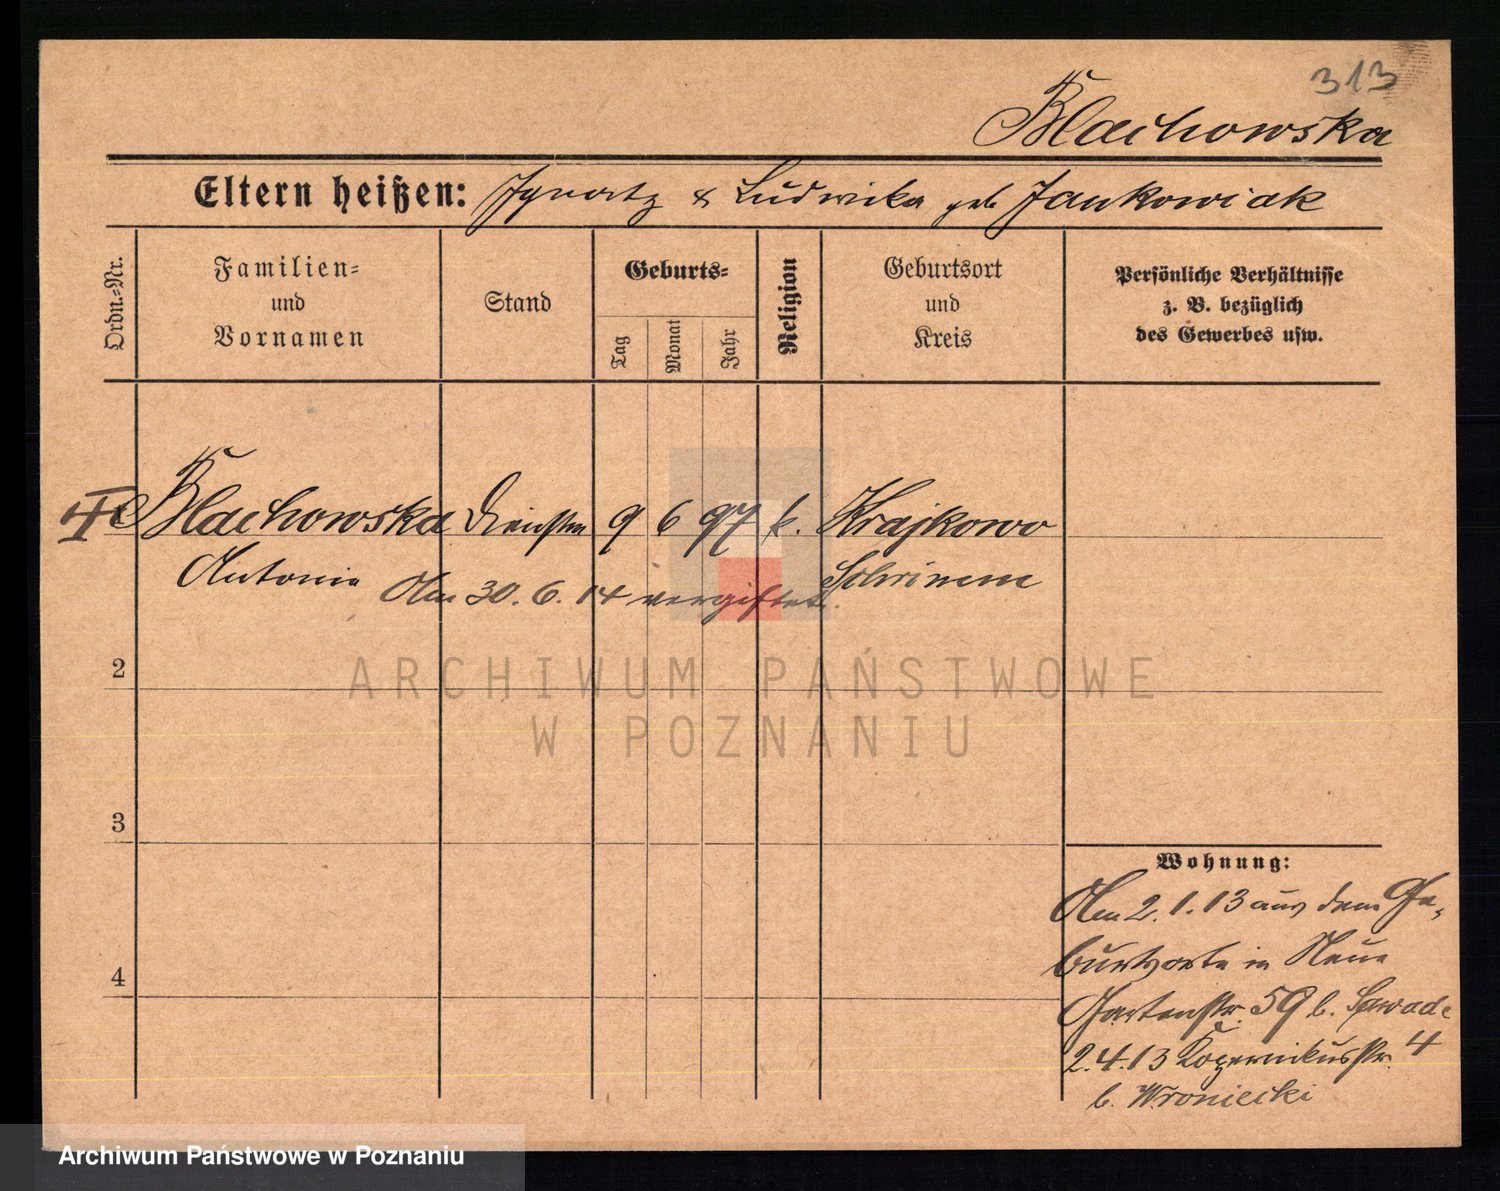 313
Blachowska
Eltern heißen: Ignatz & Ludwika geb Jankowiak
Ordn.=Nr.
Familien=
und
Vornamen
Stand
Geburts=
Tag
Monat
Jahr
Religion
Geburtsort
und
Kreis
Persönliche Verhältnisse
z. B. bezüglich
des Gewerbes usw.
Blachowska 9 6 97 k. Krajkowo
Antonie
Am 30. 6. 14 vergiftet.
2
ARCHIWUM PAŃSTWOWE
W POZNANIU
3
Wohnung:
Am 2. 1. 13 aus dem Ge-
burtsorte in Neue
4
Gartenstr. 59 b.
2. 4. 13 Kopernikusstr. 4
b. Wroniecki
Archiwum Państwowe w Poznaniu